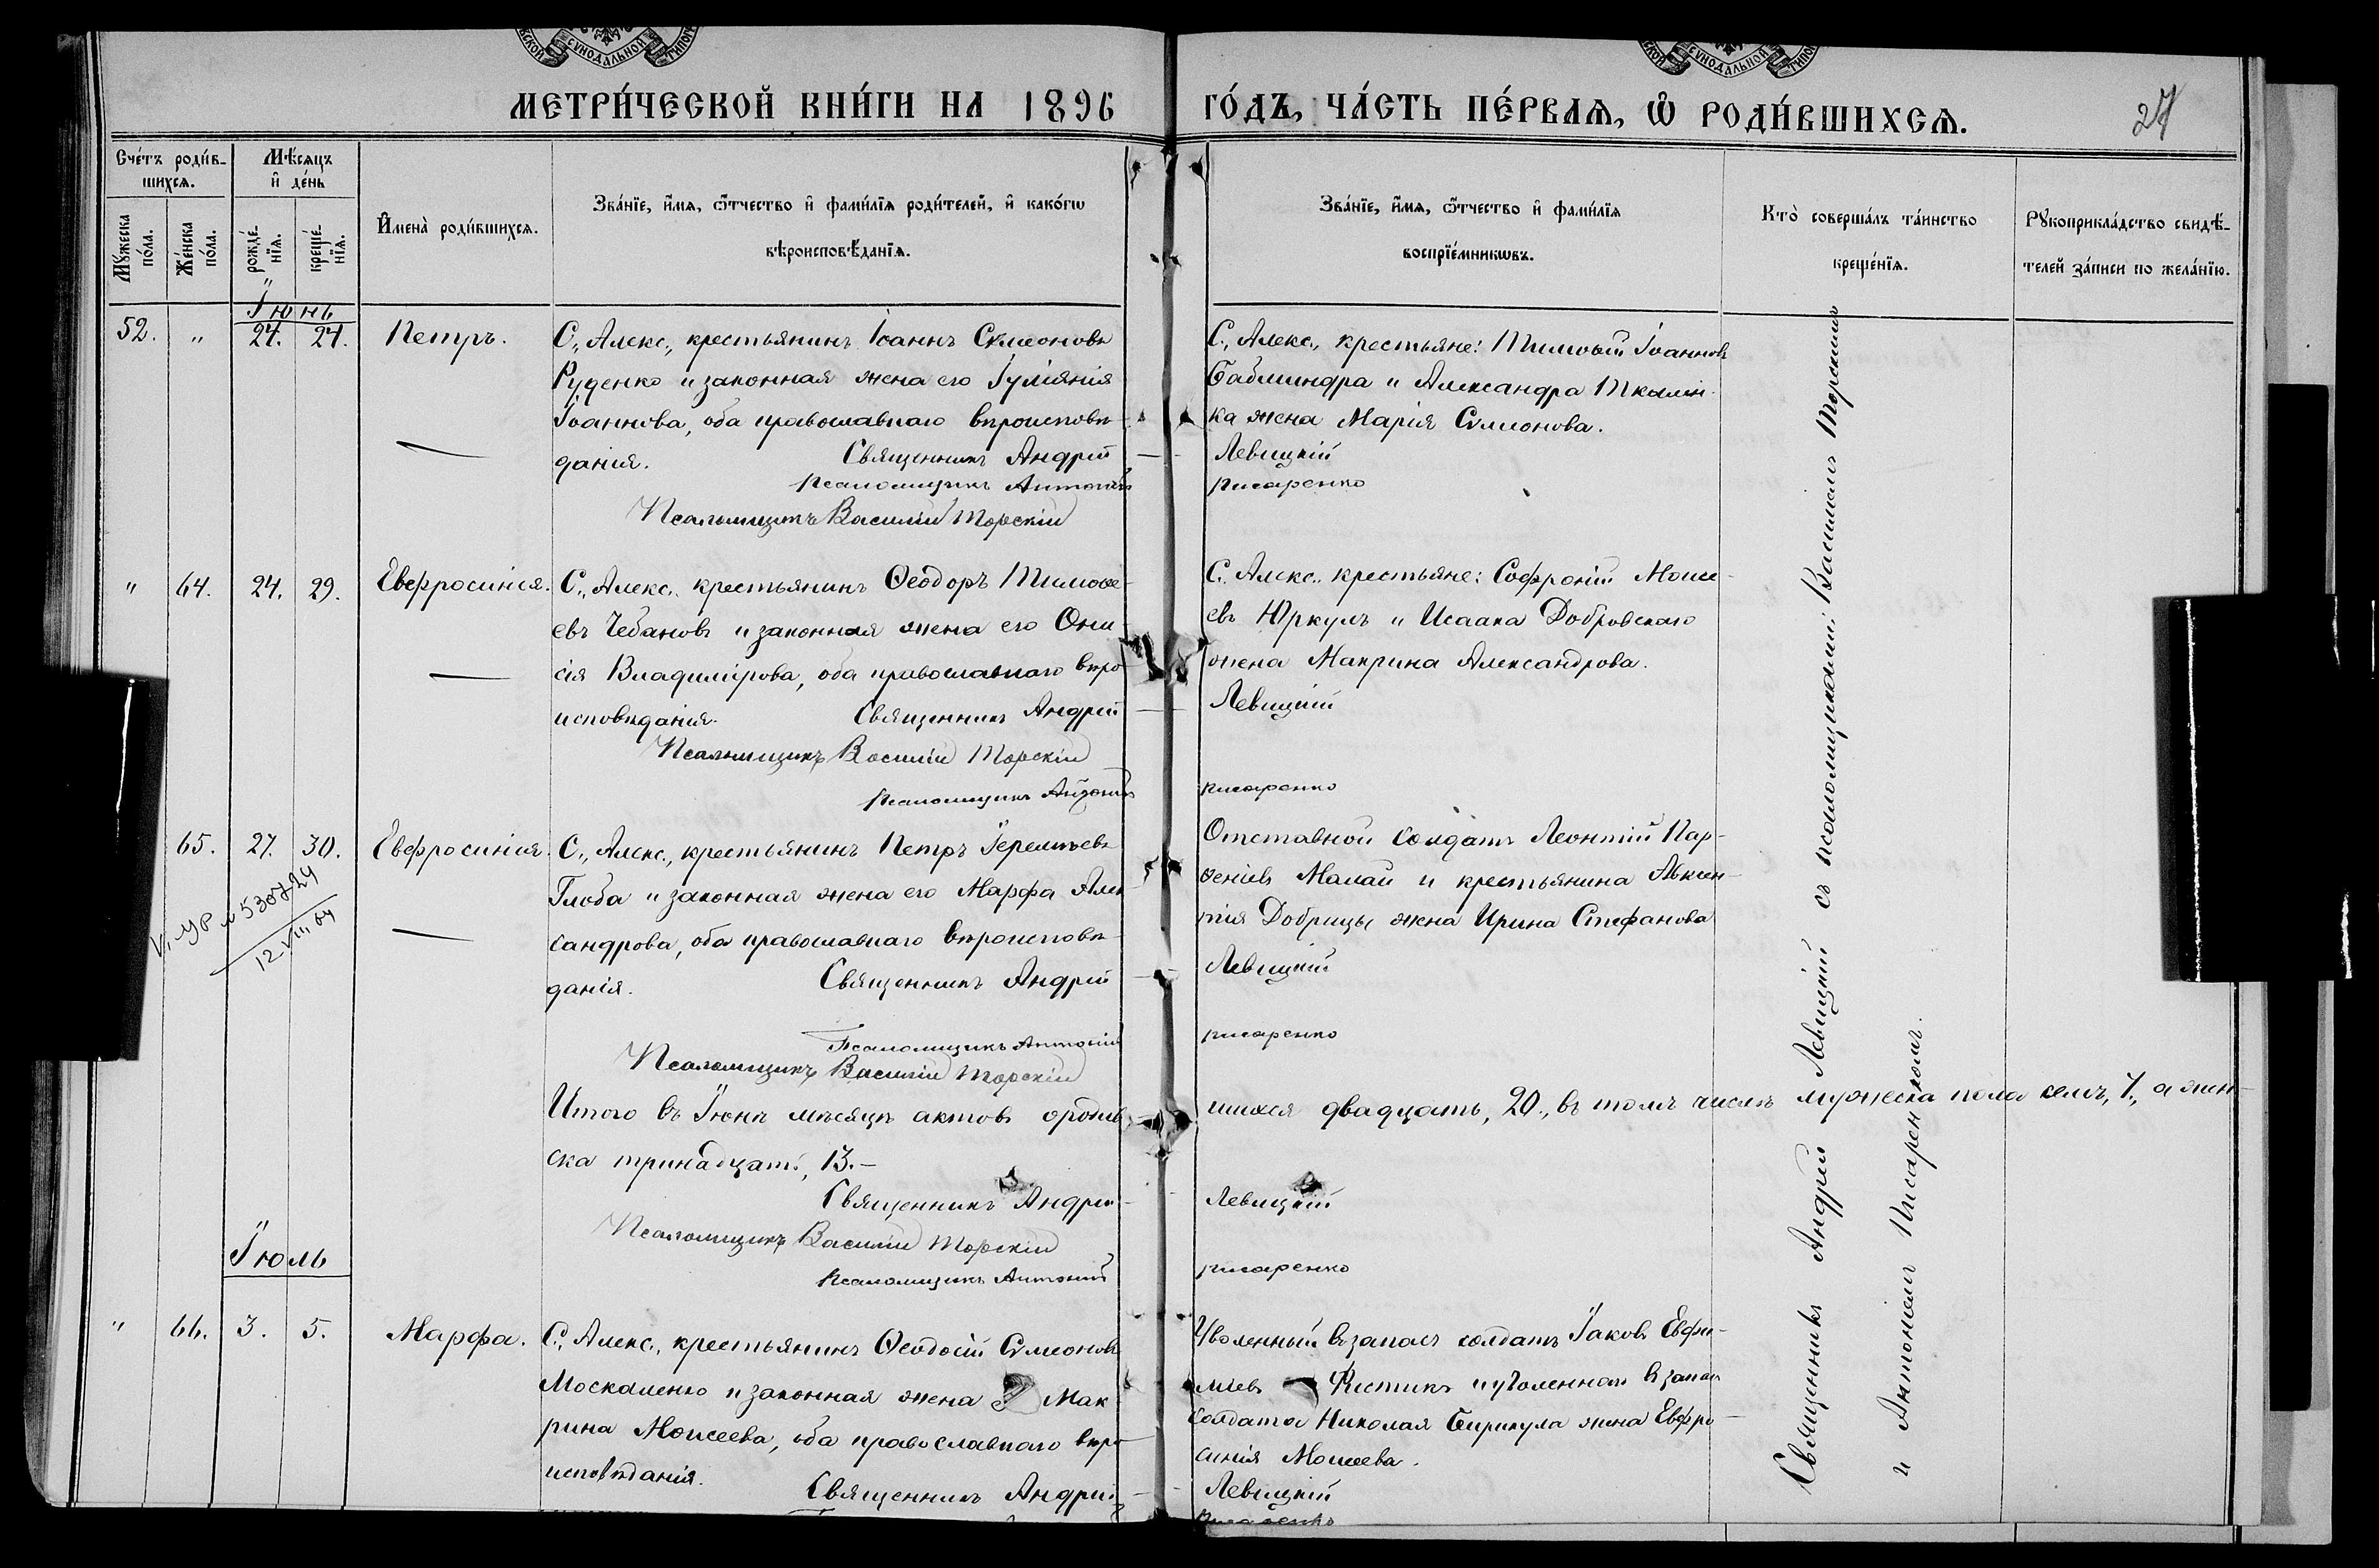 МЕТРИ́ЧЕСКОЙ КНИ́ГИ НА 1896 ГО́ДЪ, ЧА́СТЬ ПЕ́РВАѦ, Ѽ РОДИ́ВШИХСѦ.
27
Сче́тъ роди́в-
шихсѧ.
Мѣ́сѧцъ
и҆ де́нь
Мꙋ́жеска
по́ла.
Же́нска
по́ла.
рожде́-
нїѧ.
креще́-
нїѧ.
И҆мена̀ роди́вшихсѧ.
Зва́нїе, и҆́мѧ, ѻ҆́тчество и҆ фами́лїѧ роди́телей, и҆ како́гѡ
вѣроисповѣ́данїѧ.
Зва́нїе, и҆́мѧ, ѻ҆́тчество и҆ фами́лїѧ
воспрїе́мникѡвъ.
Кто̀ соверша́лъ та́инство
креще́нїѧ.
Рꙋкоприкла́дство свидѣ́-
телей за́писи по жела́нїю.
Іюнь
52. " 24. 24. Петръ.
С., Алекс., крестьянинъ Іоаннъ Сѵмеоновъ
Руденко и законная жена его Іуліанія
Іоаннова, оба православнаго вѣроисповѣ-
данія. Священникъ Андрей
Псаломщикъ Антоній
Псаломщикъ Василій Торскій
С., Алекс., крестьяне: Тимоѳей Іоанновъ
и Александра
ка жена Марія Сѵмеонова.
Левицкій
Писаренко
" 64. 24. 29. Евфросинія.
С., Алекс., крестьянинъ Ѳеодоръ Тимоѳе-
евъ Чебановъ и законная жена его Они-
сія Владимірова, оба православнаго вѣро-
исповѣданія. Священникъ Андрей
Псаломщикъ Василій Торскій
Псаломщикъ Антоній
С. Алекс., крестьяне: Софроній Моисе-
евъ Юркулъ и Исаака Добровскаго
жена Макрина Александрова.
Левицкій
Писаренко
65. 27. 30. Евфросинія.
С., Алекс., крестьянинъ Петръ Іереміевъ
Глоба и законная жена его Марфа Алек-
сандрова, оба православнаго вѣроисповѣ-
данія. Священникъ Андрей
Псаломщикъ Антоній
Псаломщикъ Василій Торскій
Отставной солдатъ Леонтій Пар-
ѳеніевъ Малай и крестьянина Авксен-
тія Добрицы жена Ирина Стефанова
Левицкій
Писаренко
530724
12 VIII 64
Итого въ Іюнѣ мѣсяцѣ актовъ о родив-
шихся двадцать, 20., въ томъ числѣ мужеска пола семъ, 7., а жен-
ска тринадцать, 13.-
Священникъ Андрей
Псаломщикъ Василій Торскій
Псаломщикъ Антоній
Левицкій
Писаренко
Іюль
" 66. 3. 5. Марфа.
С., Алекс., крестьянинъ Ѳеодосій Сѵмеоновъ
Москаленко и законная жена Мак-
рина Моисеева, оба православнаго вѣро-
исповѣданія.
Священникъ Андрей
Уволенный въ запасъ солдатъ Іаковъ Евфи-
міевъ Фистикъ и уволеннаго въ запасъ
солдата Николая Бирикула жена Евфро-
синія Моисеева.
Левицкій
Писаренко
Священникъ Андрей Левицкій съ псаломщиками: Василіемъ Торскимъ
и Антоніемъ Писаренкомъ.